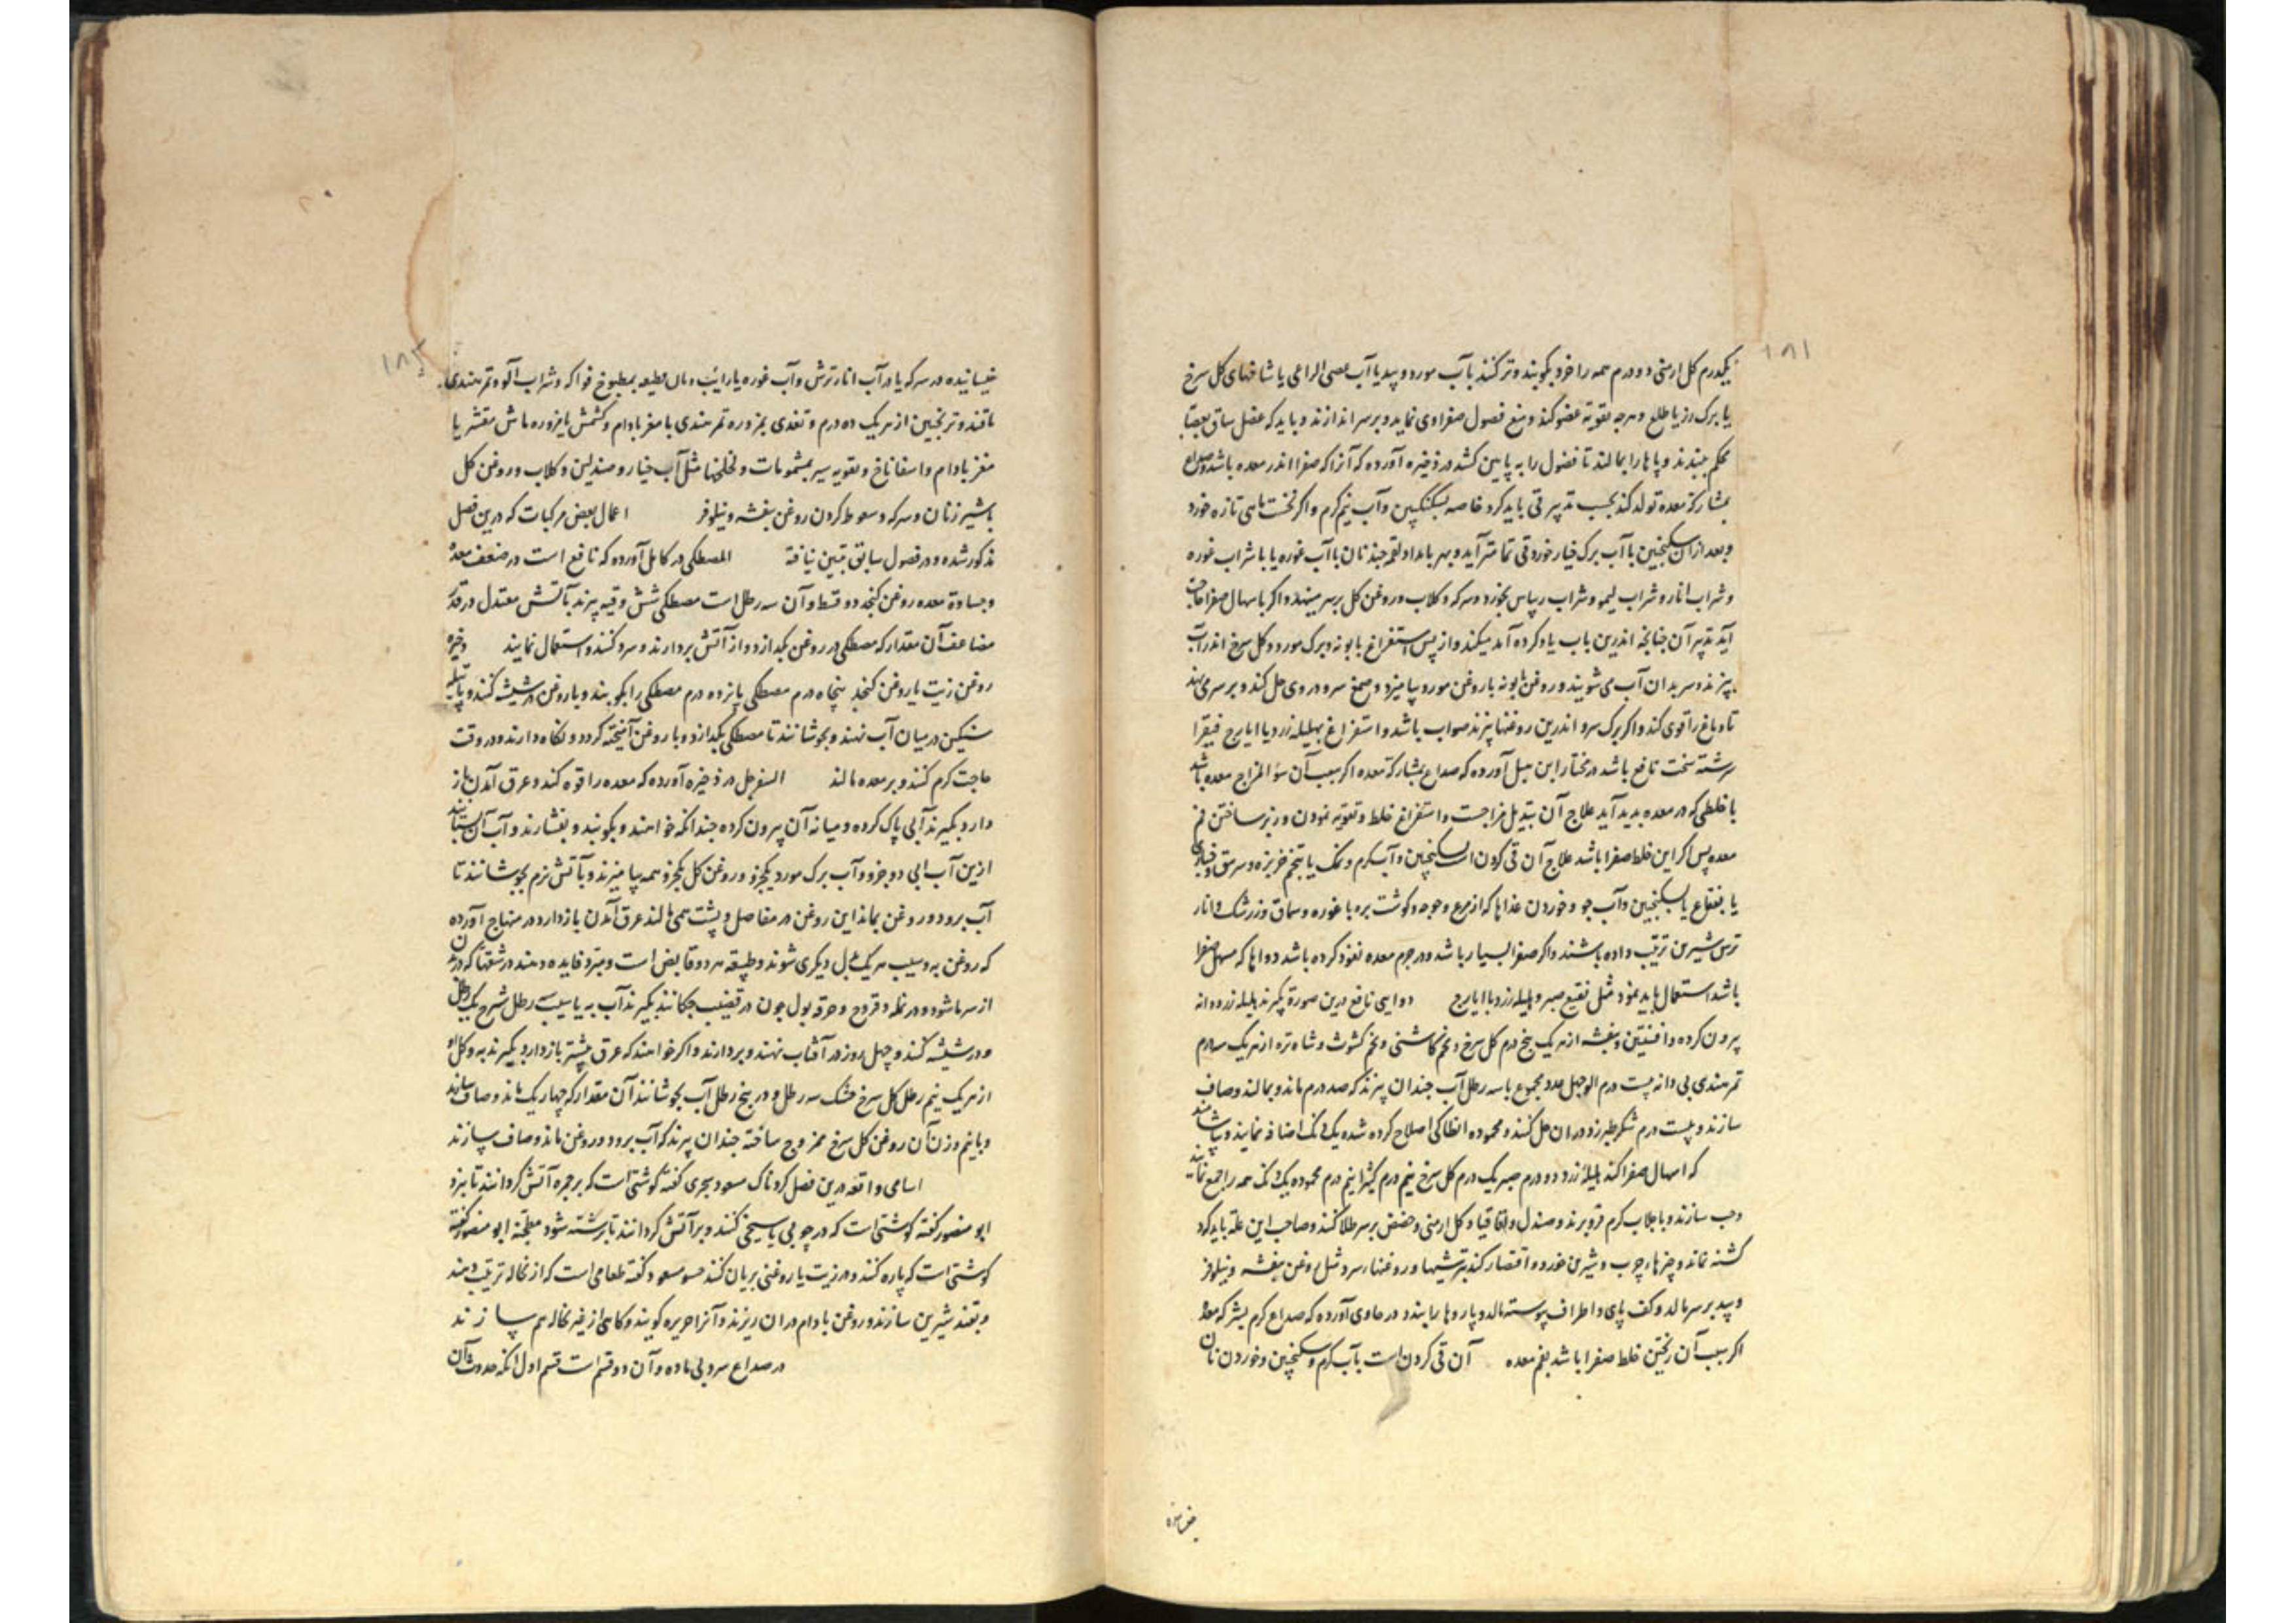 ۱۸۱
یکدرم کل ارمنی دو درم همه را خرد بکوبند و تر کنند بآب مورد و بید یا آب عصی الراعی یا شاخهای کل سرخ
یا برک رز یا طلع و هرچه تقویة عضو کند و منع فضول صفراوی نماید و بر سر اندازند و باید که عضل ساق بعصابه
محکم ببندند و پاها را بمالند تا فضول را به پایین کشد در ذخیره آورده که آنرا که صفرا اندر معده باشد و صداع
بمشارکة معده تولد کند بحسب تدبیر قی باید کرد خاصه بسکنکبین و آب نیم کرم و اکر نخست ماهی تازه خورد
و بعد از آن سکنجبین با آب برک خیار خورد قی تمامتر آید و بهر بامداد لقمه چند نان با آب غوره یا با شراب غوره
و شراب انار و شراب لیمو و شراب ریباس بخورد و سرکه و کلاب و روغن کل بر سر مینهد و اکر باسهال صفرا حاجت
آید تدبیر آن چنانچه اندرین باب یاد کرده آمد میکند و از پس استفراغ بابونه و برک مورد و کل سرخ اندر آب
بپزند و سر بدان آب می شویند و روغن بابونه با روغن مورد بیامیزد و صمغ سرو در وی حل کند و بر سر می نهد
تا دماغ را قوی کند و اکر برک سرو اندرین روغنها پزند صواب باشد و استفراغ بهلیله زرد با ایارج فیقرا
سرشته سخت نافع باشد در مختار ابن هبل آورده که صداع بمشارکة معده اکر سبب آن سؤ المزاج معده باشد
یا خلطی که در معده پدید آید علاج آن تبدیل مزاجست و استفراغ خلط و تقویه نمودن و زبر ساختن فم
معده پس اکر این خلط صفرا باشد علاج آن قی کردن است بسکنجبین و آب کرم و نمک یا بتخم خربزه و سرمق و خبازی
یا بفقاع یا بسکنجبین و آب جو و خوردن غذاها که از مرغ و جوجه و کوشت بره با غوره و سماق و زرشک و انار
ترش شیرین ترتیب داده باشند و اکر صفرا بسیار باشد و در جرم معده نفوذ کرده باشد دواها که مسهل صفرا
باشد استعمال باید نمود مثل نقیع صبر و هلیله زرد با ایارج دوایی نافع درین صورة بکیرند هلیله زرد دانه
بیرون کرده و افسنتین و بنفشه از هر یک پنج درم کل سرخ و تخم کاسنی و تخم کشوث و شاه تره از هر یک سه درم
تمر هندی بی دانه بیست درم الو چهل عدد مجموع با سه رطل آب چندان بپزند که صد درم ماند و بمالند و صاف
سازند و بیست درم شکر طبرزد در ان حل کنند و محموده انطاکی اصلاح کرده شده یک دانک اضافه نمایند و بیاشامند
که اسهال صفرا کند هلیلهٔ زرد دو درم صبر یک درم کل سرخ نیم درم کثیرا نیم درم محموده یک دانک همه را جمع نمایند
و حب سازند و با جلاب کرم فرو برند و صندل و اقاقیا و کل ارمنی و حضض بر سر طلا کنند و صاحب این علة باید که
کشنه نماند و چیزهاء چرب و شیرین نخورد و اقتصار کند بترشیها و روغنهاء سرد مثل روغن بنفشه و نیلوفر
و بید بر سر مالد و کف پای و اطراف پیوسته مالد و بازوها را ببندد در حاوی آورده که صداع کرم بشرکة معدهٔ
اکر سبب آن ریختن خلط صفرا باشد بفم معده آن قی کردن است بآب کرم و سکنجبین و خوردن نان
۱۸۲
خیسانیده در سرکه یا در آب انار ترش و آب غوره یا رایب و مان طبعه بمطبوخ فواکه و شراب آلو و تمر هندی
با قند و ترنجبین از هر یک ده درم و تغذی بمزوره تمر هندی با مغز بادام و کشمش یا مزوره ماش مقشر با
مغز بادام و اسفاناخ و تقویه سر بمشمومات و لخلخها مثل آب خیار و صندلین و کلاب و روغن کل
با شیر زنان و سرکه و سعوط کردن روغن بنفشه و نیلوفر اعمال بعض مرکبات که درین فصل
مذکور شده و در فصول سابق تبیین نیافته المصطکی در کامل آورده که نافع است در ضعف معدهٔ
و جساوة معده روغن کنجد دو قسط و آن سه رطل است مصطکی شش وقیه بپزند بآتش معتدل در قدر
مضاعف آن مقدار که مصطکی در روغن بکدازد و از آتش بردارند و سرد کنند و استعمال نمایند ذخیره
روغن زیت یا روغن کنجد پنجاه درم مصطکی پانزده درم مصطکی را بکوبند و با روغن در شیشه کنند و پاتیله
سنکین در میان آب نهند و بجوشانند تا مصطکی بکدازد و با روغن آمیخته کردد و نکاه دارند و در وقت
حاجت کرم کنند و بر معده مالند السفرجل در ذخیره آورده که معده را قوه کند و عرق آمدن باز
دارد بکیرند آبی پاک کرده و میانه آن بیرون کرده چندانکه خواهند و بکوبند و بفشارند و آب آن بستانند
ازین آب ابی دو جزو و آب برک مورد یکجزو و روغن کل یکجزو همه بیامیزند و بآتش نرم بجوشانند تا
آب برود و روغن بماند این روغن در مفاصل و پشت همی مالند عرق آمدن بازدارد در منهاج آورده
که روغن به و سیب هر یک بدل دیکری شوند و طبیعه هر دو قابض است و مبرد فایده دهند در شقها که در
از سرما شود و در نمله و قروح و حرقه بول چون در قضیب چکانند بکیرند آب به یا سیب سه رطل شیرج یک رطل
و در شیشه کنند و چهل روز در آفتاب نهند و بردارند و اکر خواهند که عرق بیشتر بازدارد بکیرند به و کل او
از هر یک نیم رطل کل سرخ خشک سه رطل و در پنج رطل آب بجوشانند آن مقدار که چهار یک ماند و صاف سازند
و با نیم وزن آن روغن کل سرخ ممزوج ساخته چندان بپزند که آب برود و روغن ماند و صاف سازند
اسامی واقعه درین فصل کردناک مسعود سجزی کفته کوشتی است که بر جمره آتش کردانند تا بپزد
ابو منصور کفته کوشتی است که در چوبی یا سیخی کنند و بر آتش کردانند تا برشته شود مطجنه ابو منصور کفته
کوشتی است که پاره کنند و در زیت یا روغنی بریان کنند حسو مسعود کفته طعامی است که از نخاله ترتیب دهند
و بقند شیرین سازند و روغن بادام در ان ریزند و آنرا حریره کویند و کاهی از غیر نخاله هم سازند
در صداع سرد بی ماده و آن دو قسم است قسم اول آنکه حدوث آن